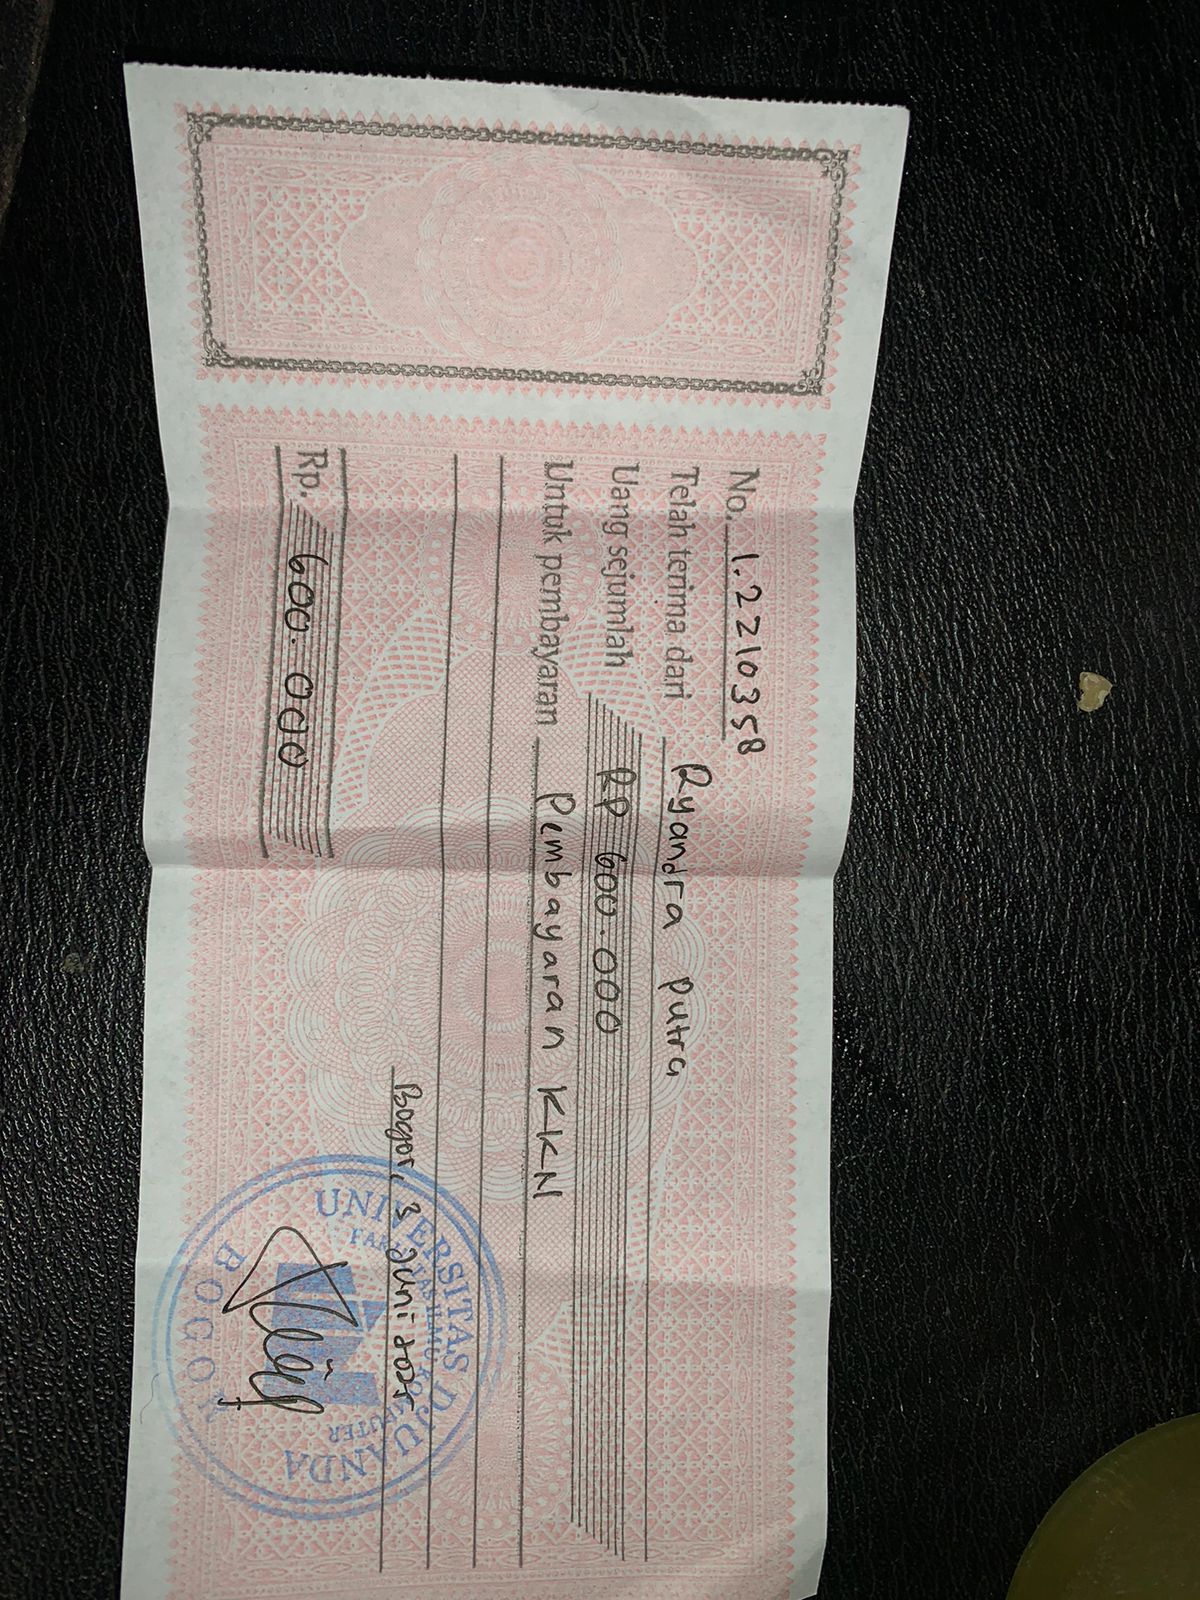 No. 1.2210358
Telah terima dari Ryandra Putra
Uang sejumlah RP 600.000
Untuk pembayaran Pembayaran KKN
Rp. 600.000
Bogor, 3 Juni 2025
UNIVERSITAS DJUANDA
FAKULTAS ILMU KOMPUTER
BOGOR